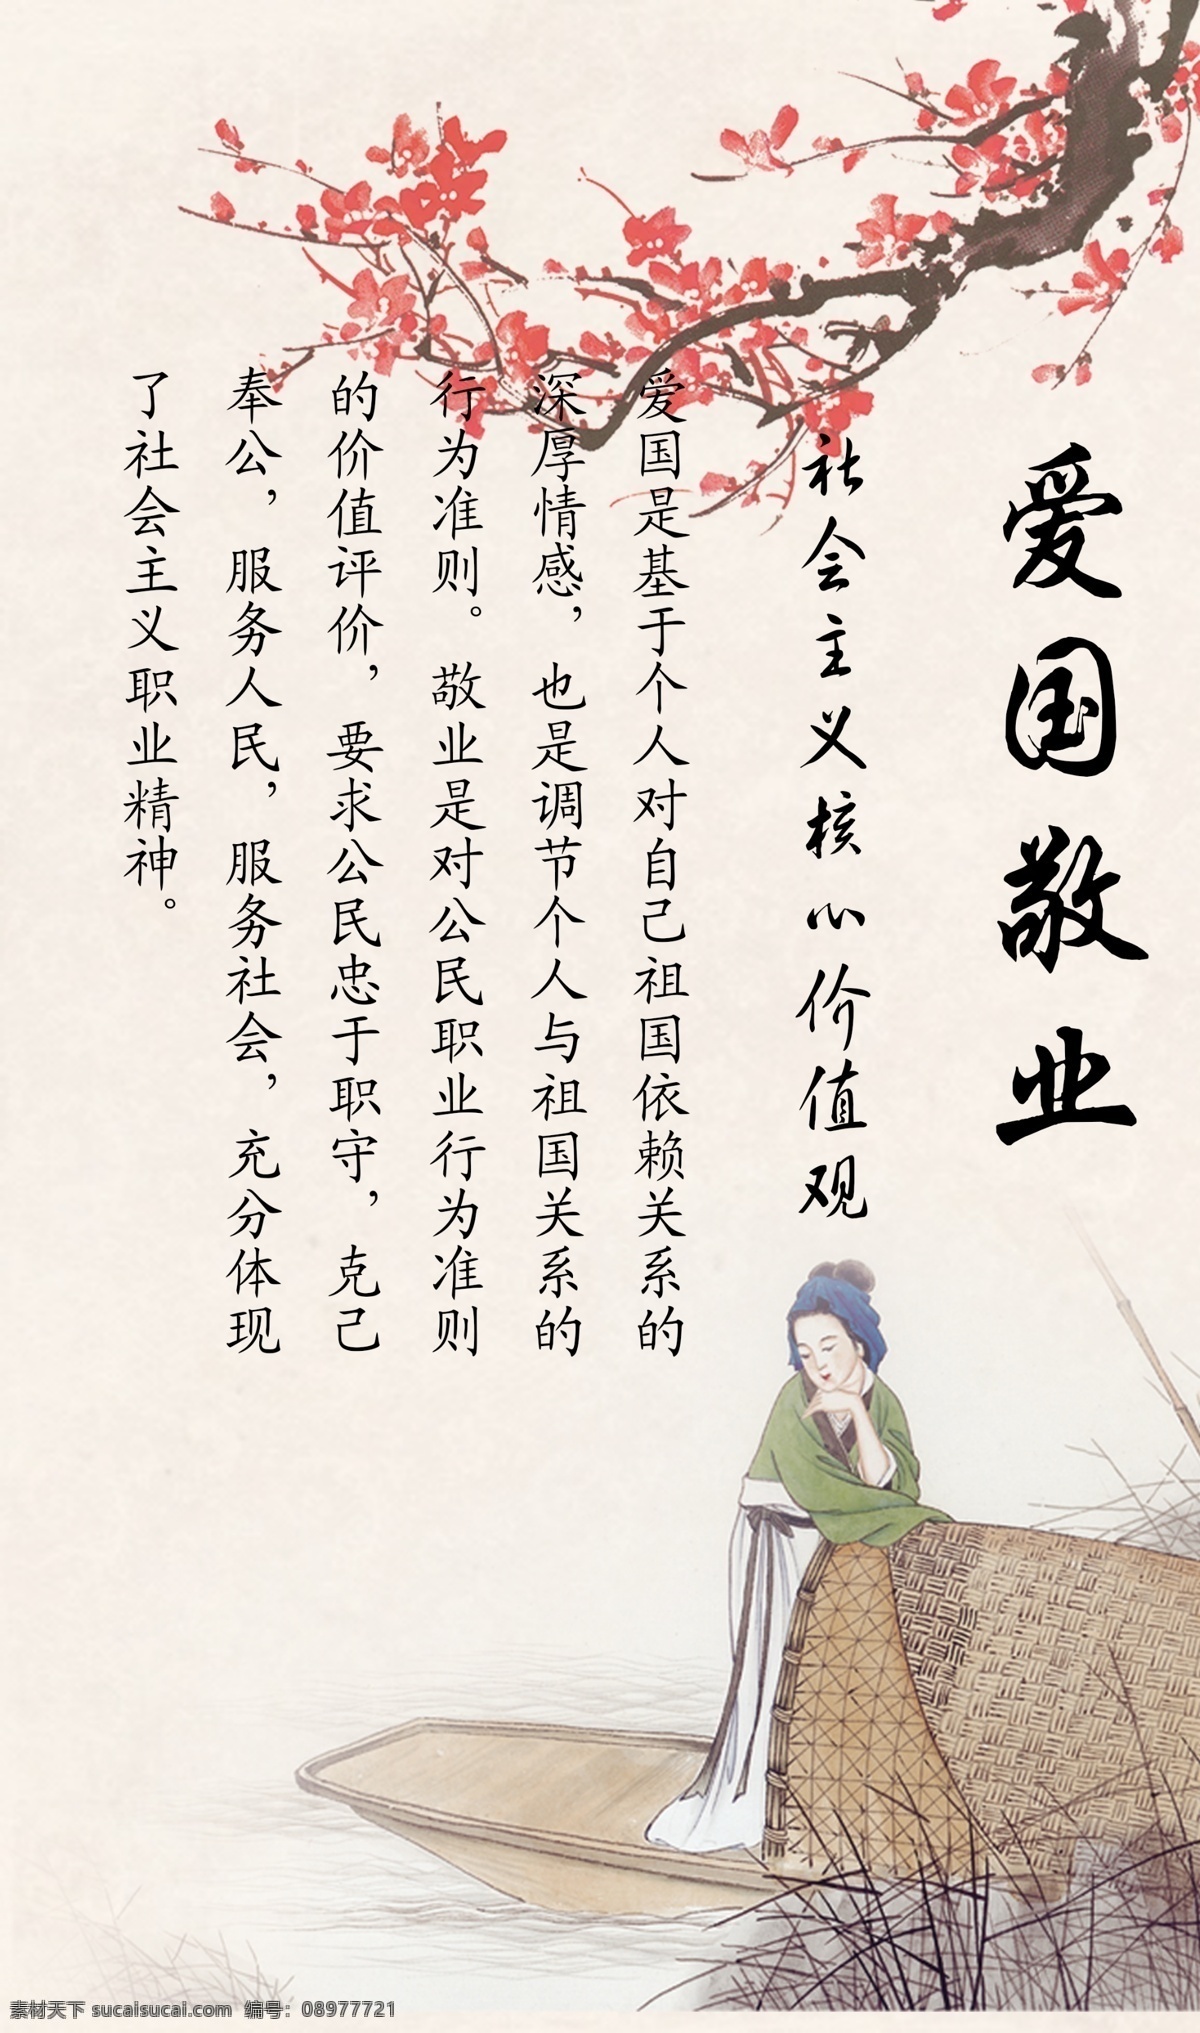 爱国敬业
社会主义核心价值观
爱国是基于个人对自己祖国依赖关系的
深厚情感，也是调节个人与祖国关系的
行为准则。敬业是对公民职业行为准则
的价值评价，要求公民忠于职守，克己
奉公，服务人民，服务社会，充分体现
了社会主义职业精神。
素材天下 sucaisucai.com 编号：08977721